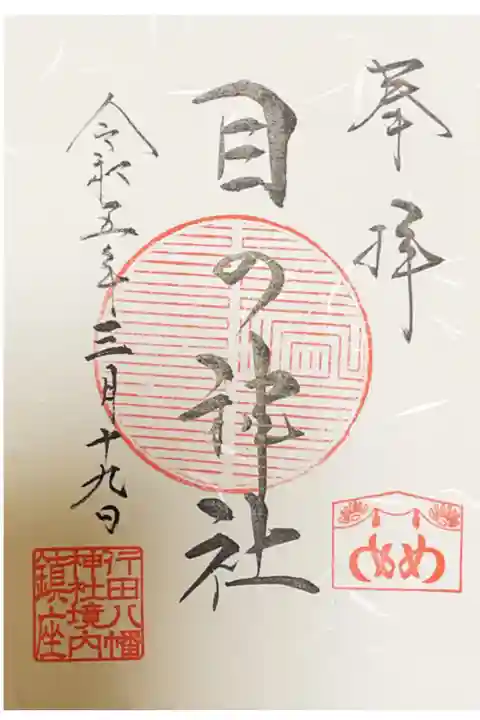 奉拝
目の神社
令和五年三月十九日
めめ
行田八幡
神社境内
鎮座